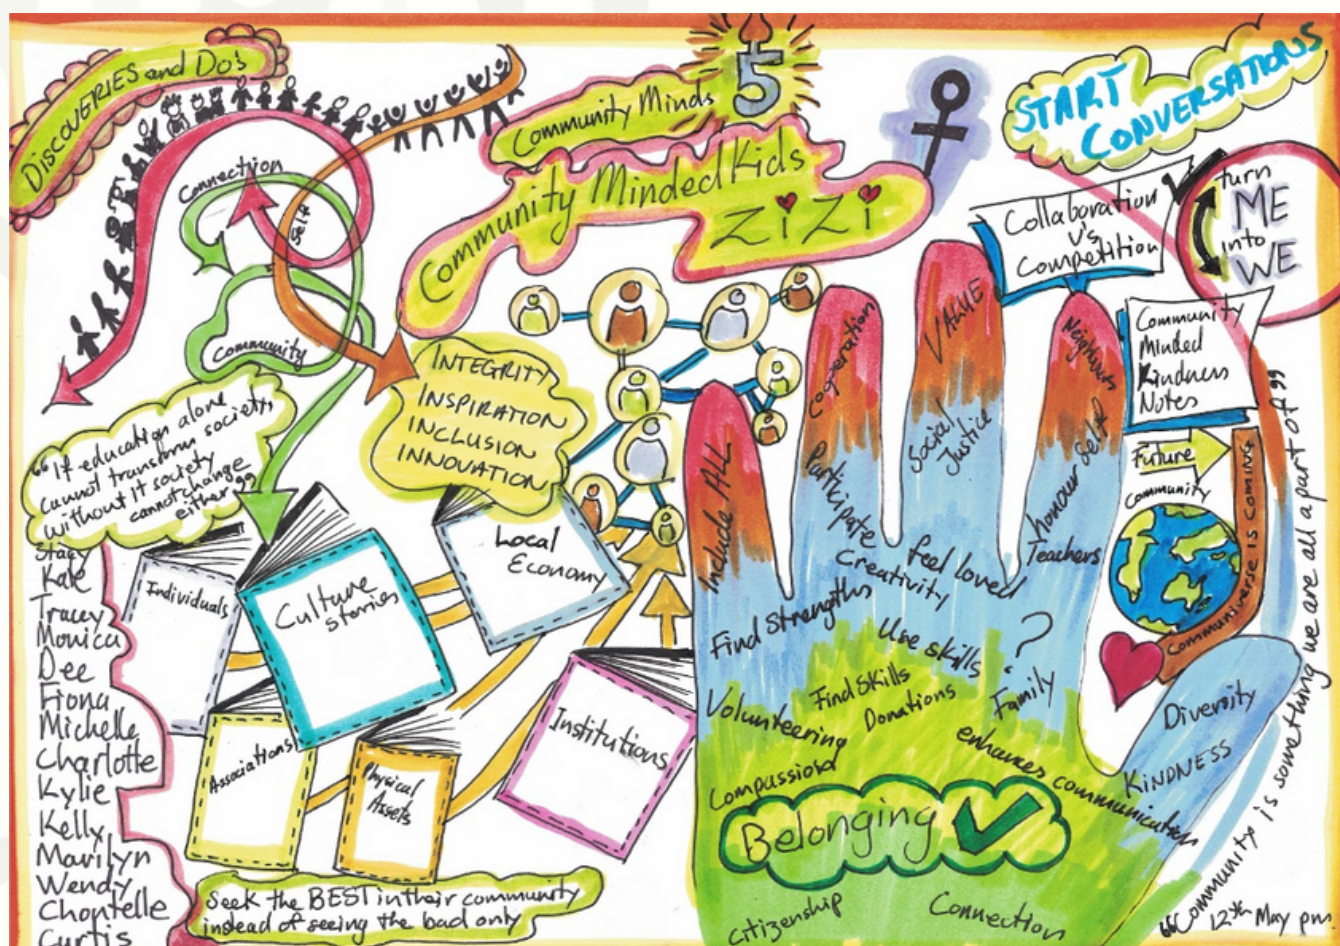 DISCOVERIES and Do's
Connection
Self
Community
Community Minds
5
Community Minded Kids
ZiZi
START
CONVERSATIONS
Collaboration
v's
Competition
turn
ME
into
WE
Community
Minded
Kindness
Notes
Future
Community
Communiverse is coming
INTEGRITY
INSPIRATION
INCLUSION
INNOVATION
"If education alone
cannot transform society,
without it society
cannot change
either"
Stacy
Kate
Tracey
Monica
Dee
Fiona
Michelle
Charlotte
Kylie
Kelly
Marilyn
Wendy
Chontelle
Curtis
Individuals
Culture
stories
Local
Economy
Associations
Physical
Assets
Institutions
Seek the BEST in their community
instead of seeing the bad only
Include ALL
Cooperation
VALUE
Neighbours
Participate
Social
Justice
honour self
Teachers
Creativity
feel loved
Find Strengths
Use skills
?
Family
Volunteering
Find Skills
Donations
enhances communication
Diversity
KINDNESS
Belonging
Citizenship
Connection
"Community is something we are all a part of"
12th May pm